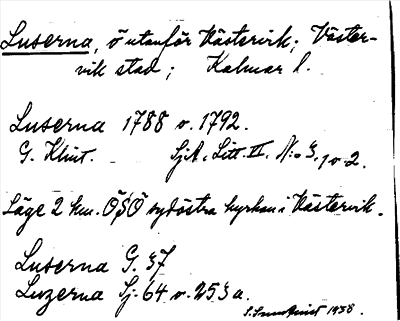 Luserna, ö utanför Västervik; Väster-
vik stad; Kalmar l.
Luserna 1788 o. 1792.
G. Klint. SjA. Litt. II. N:o 3, 1 o 2.
Läge 2 km. ÖSÖ sydöstra kyrkan i Västervik.
Luserna G. 37
Luzerna Sj. 64 o. 253 a.
1938.